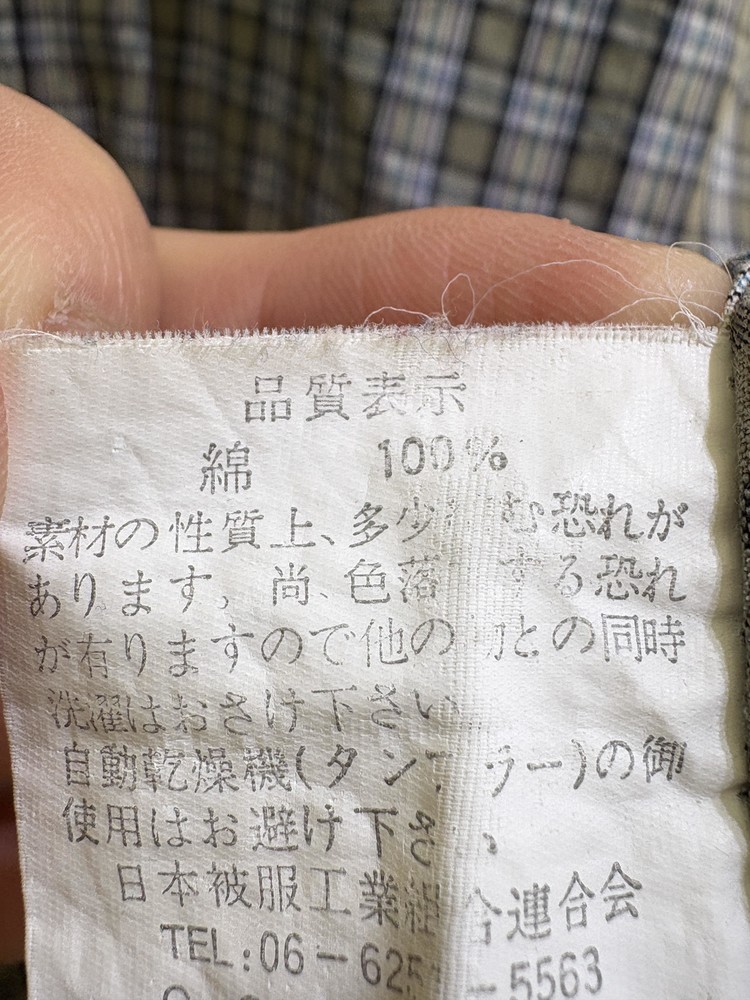 品質表示
綿 100%
素材の性質上、多少 む恐れが
あります。尚、色落 する恐れ
が有りますので他の物との同時
洗濯はおさけ下さい
自動乾燥機(タンブラー)の御
使用はお避け下さい
日本被服工業組合連合会
TEL:06-625 -5563